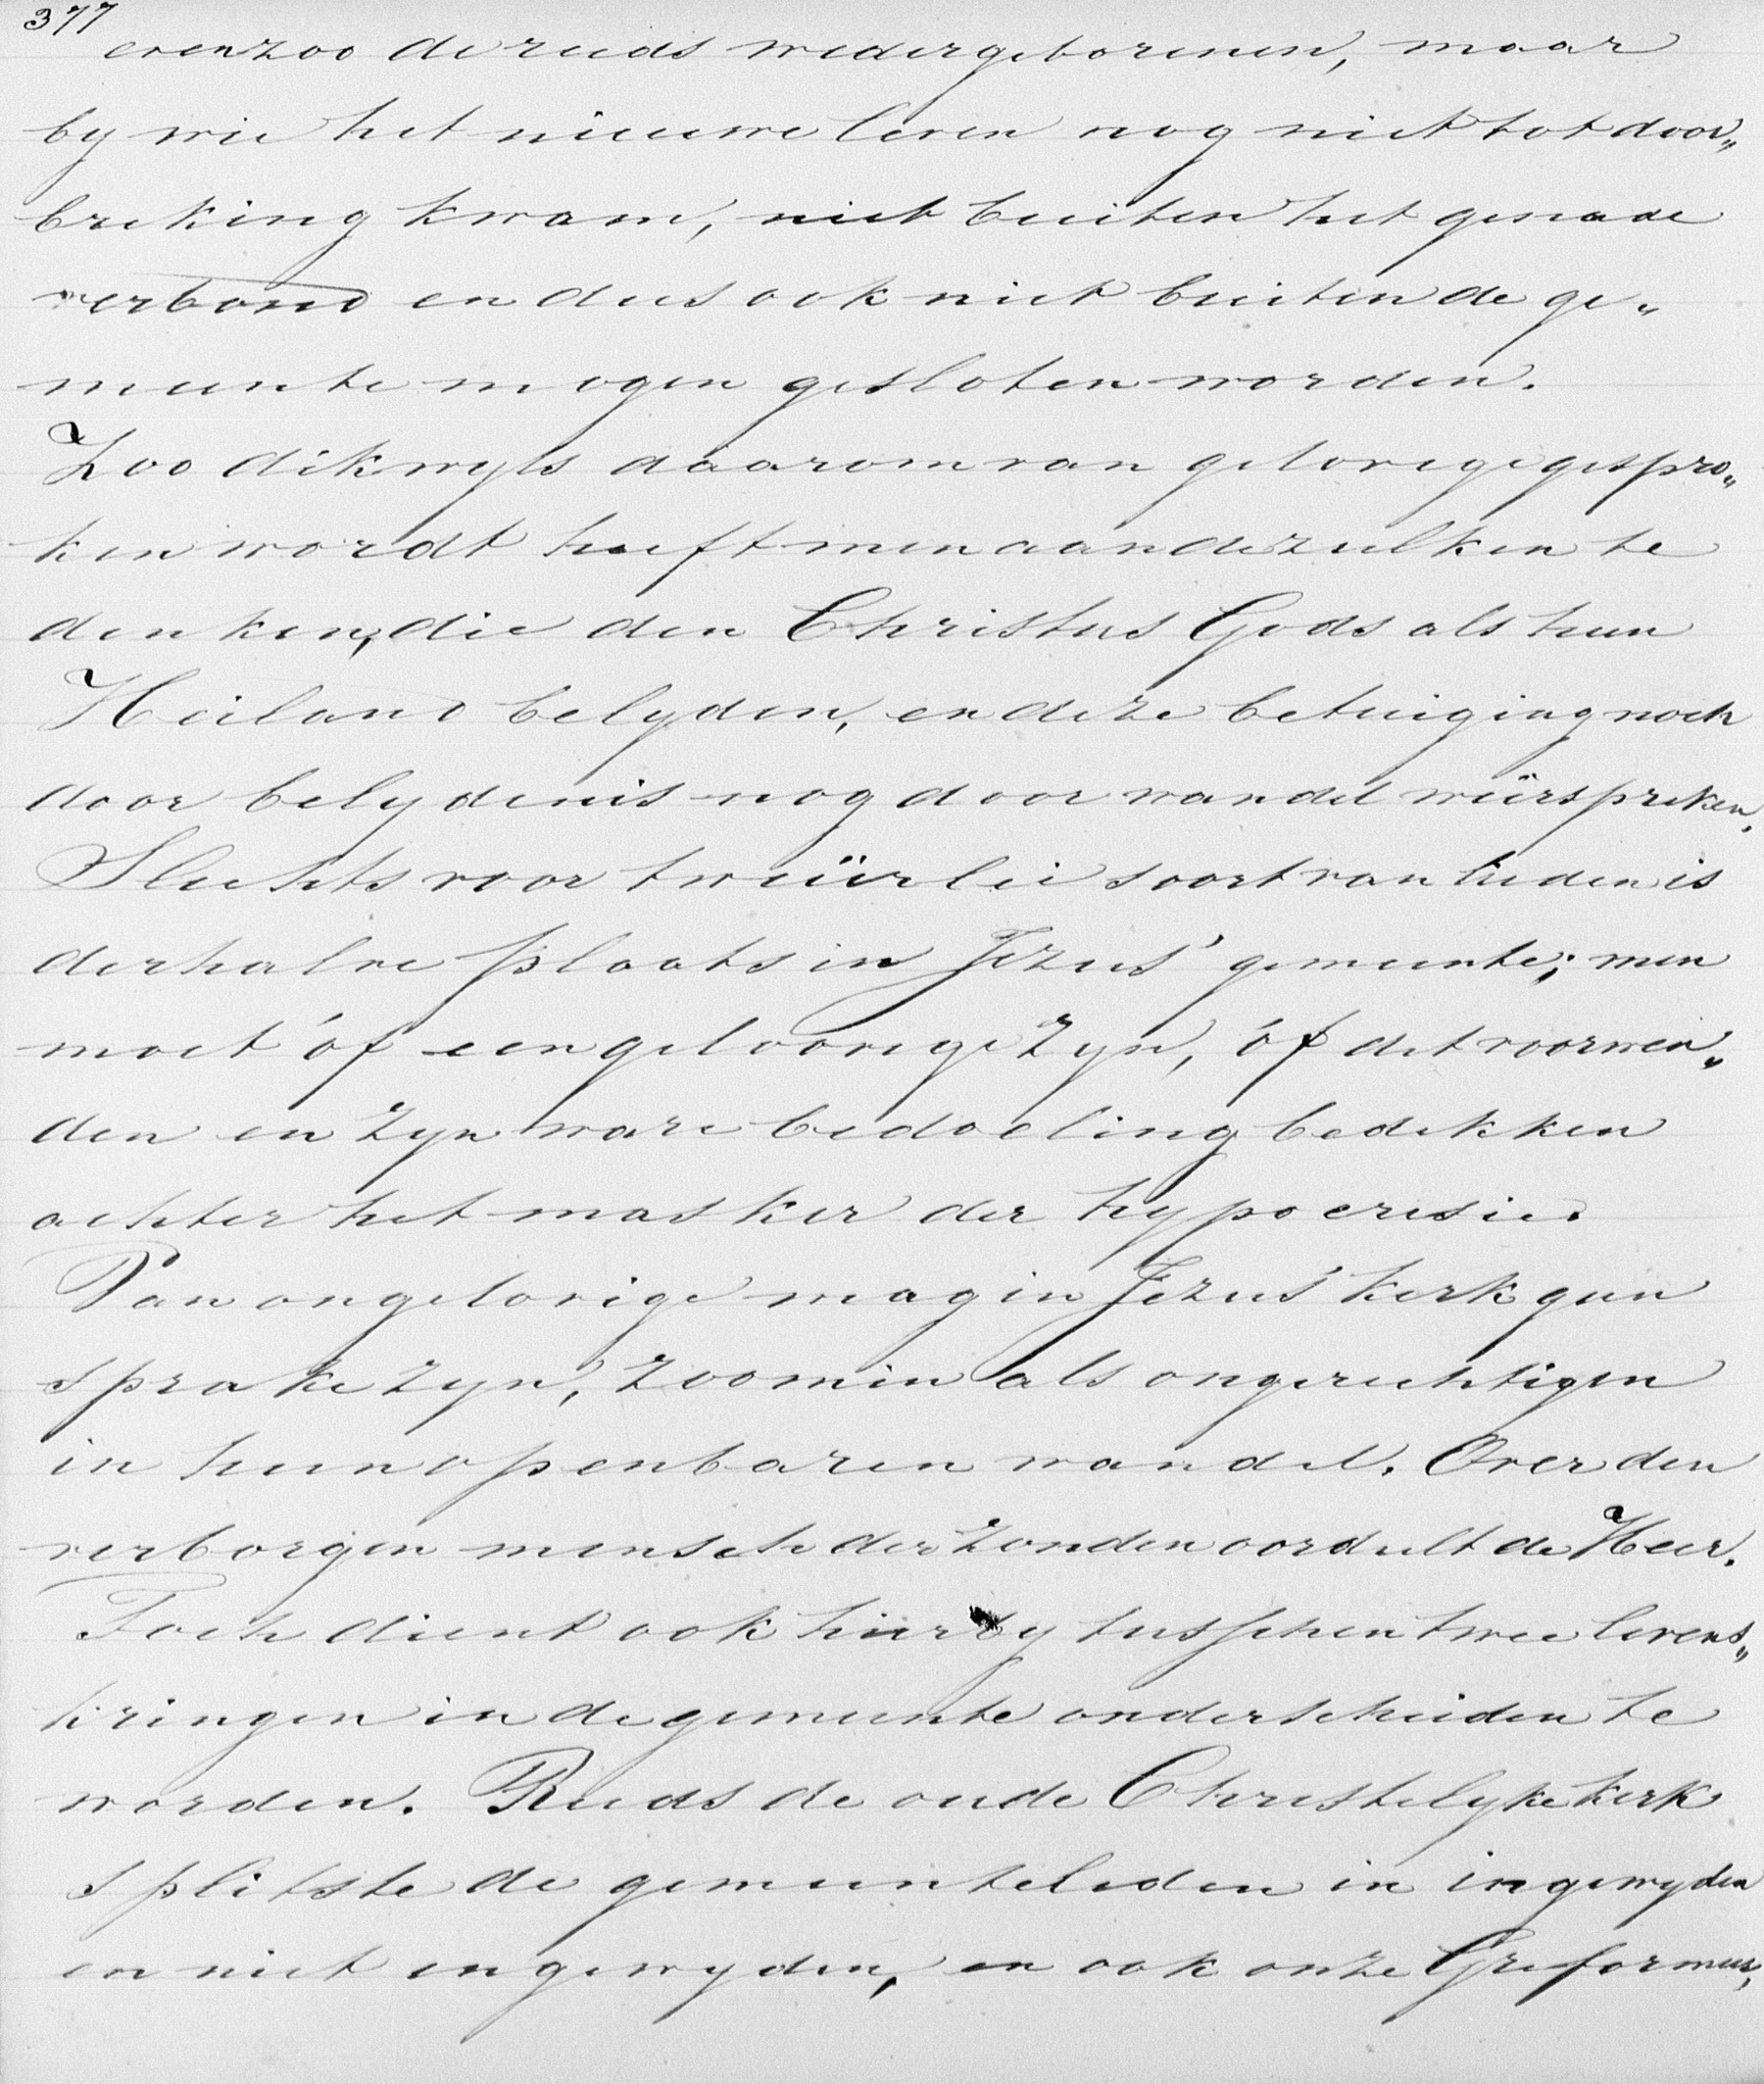 377
evenzoo de reeds wedergeborenen, maar
by wie het nieuwe leven nog niet tot door„
breking kwam, niet buiten het genade
verbond en dus ook niet buiten de ge„
meente mogen gesloten worden.
Zoo dikwyls daarom van gelovige gespro„
ken wordt heeft men aan dezulken te
denken, die den Christus Gods als hun
Heiland belyden, en deze betuiging noch
door belydenis nog door wandel weêrspreken.
Slechts voor tweeërlei soort van lieden is
derhalve plaats in Jezus' gemeente; men
moet óf een geloovige zyn, óf dit voorwen„
den en zyn ware bedoeling bedekken
achter het masker der hypocresie.
Van ongelovige mag in Jezus' kerk geen
sprake zyn, zoomin als ongerechtigen
in hun openbaren wandel. Over den
verborgen mensch der zonden oordeelt de Heer.
Toch dient ook hierby tusschen twee levens„
kringen in de gemeente onderscheiden te
worden. Reeds de oude Christelyke kerk
splitste de gemeenteleden in ingewyden
en niet ingewyden, en ook onze Gereformeer„